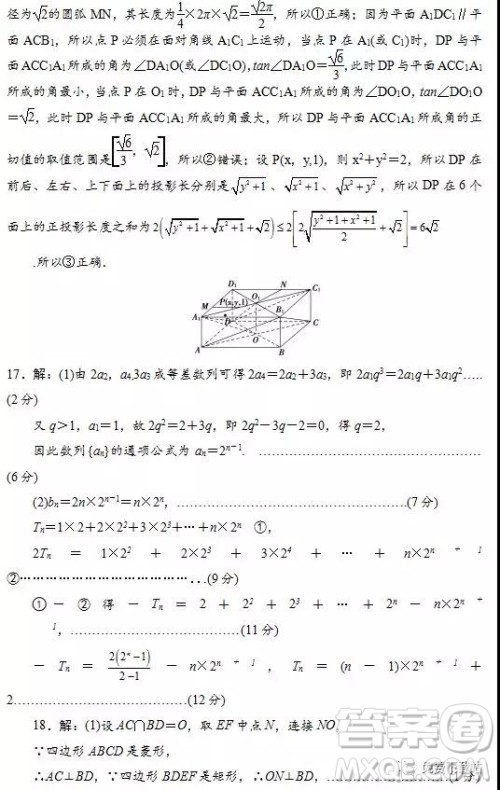 径为√2的圆弧MN，其长度为1/4×2π×√2=√2π/2，所以①正确；因为平面A₁DC₁∥平
面ACB₁，所以点P必须在面对角线A₁C₁上运动，当点P在A₁(或C₁)时，DP与平
面ACC₁A₁所成的角为∠DA₁O(或∠DC₁O)，tan∠DA₁O=√6/3，此时DP与平面ACC₁A₁
所成的角最小，当点P在O₁时，DP与平面ACC₁A₁所成的角为∠DO₁O，tan∠DO₁O
=√2，此时DP与平面ACC₁A₁所成的角最大，所以DP与平面ACC₁A₁所成角的正
切值的取值范围是[√6/3，√2]，所以②错误；设P(x，y,1)，则x²+y²=2，所以DP在
前后、左右、上下面上的投影长分别是√(y²+1)、√(x²+1)、√(x²+y²)，所以DP在6个
面上的正投影长度之和为2(√(y²+1)+√(x²+1)+√2)≤2[2√((y²+1+x²+1)/2)+√2]=6√2
.所以③正确.
D₁ N C₁
M P(x,y,1) O₁
A₁ D B₁ C
O
A B
17．解：(1)由2a₂，a₄,3a₃成等差数列可得2a₄=2a₂+3a₃，即2a₁q³=2a₁q+3a₁q²…..
(2分)
又q>1，a₁=1，故2q²=2+3q，即2q²-3q-2=0，得q=2，
因此数列{aₙ}的通项公式为aₙ=2ⁿ⁻¹. ………………………………………………
(6分)
(2)bₙ=2n×2ⁿ⁻¹=n×2ⁿ，……………………………………(7分)
Tₙ=1×2+2×2²+3×2³+…+n×2ⁿ ①，
2Tₙ = 1×2² + 2×2³ + 3×2⁴ + … + n×2ⁿ ⁺ ¹
②……………………………...(9分)
①-②得-Tₙ = 2 + 2² + 2³ + … + 2ⁿ - n×2ⁿ ⁺
¹，…………………………(11分)
-Tₙ = 2(2ⁿ-1)/(2-1) - n×2ⁿ ⁺ ¹，Tₙ = (n-1)×2ⁿ ⁺ ¹ +
2……………………………(12分)
18．解：(1)设AC∩BD=O，取EF中点N，连接NO，
∵四边形ABCD是菱形，
∴AC⊥BD，∵四边形BDEF是矩形，∴ON⊥BD，……………(1分)